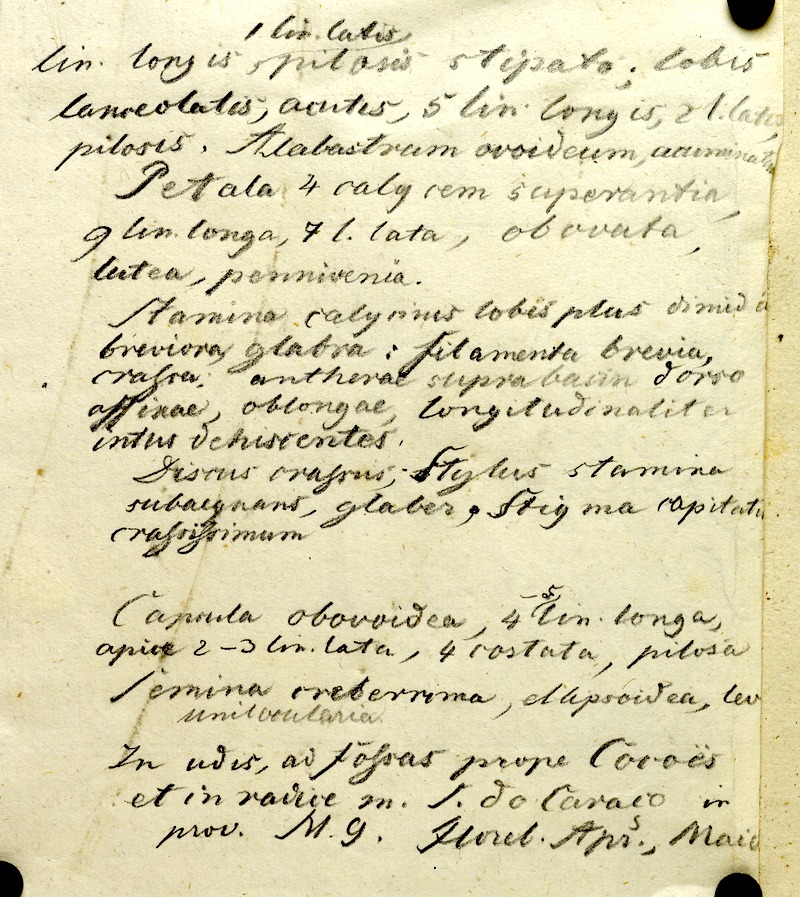 1 lin. latis
lin. longis pilosis stipato; lobis
lanceolatis, acutis, 5 lin. longis, 2 l. latis,
pilosis. Alabastrum ovoideum, acuminatu
Petala 4 calycem superantia,
9 lin. longa, 7 l. lata, obovata,
lutea, pennivenia.
Stamina calycinis lobis plus dimidio
breviora, glabra: filamenta brevia,
crassa: antherae supra basin dorso
affixae, oblongae, longitudinaliter
intus dehiscentes.
Discus crassus; Stylus stamina
subaequans, glaber, Stigma capitatu
crassissimum
5
Capsula obovoidea, 4 - lin. longa,
apice 2-3 lin. lata, 4 costata, pilosa
Semina creberrima, ellipsoidea, lev
unilocularia
In udis, ad fossas prope Cocoës
et in radice m. S. do Caraço in
prov. M. G. Floreb. Apr., Maio